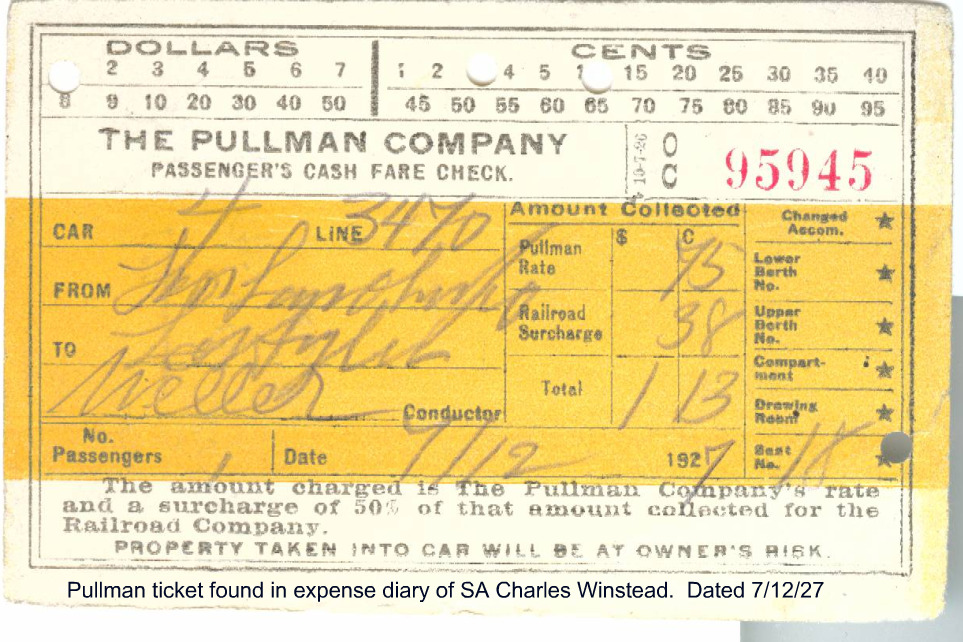 DOLLARS CENTS
2 3 4 5 6 7 1 2 4 5 1 15 20 25 30 35 40
8 9 10 20 30 40 50 45 50 55 60 65 70 75 80 85 90 95
THE PULLMAN COMPANY
PASSENGER'S CASH FARE CHECK.
10-7-26
O
C
95945
CAR 4 LINE 3470
FROM
TO
Conductor
Amount Collected
$ C
Pullman Rate 75
Railroad Surcharge 38
Total 1 13
Changed Accom. ★
Lower Berth No. ★
Upper Berth No. ★
Compartment ★
Drawing Room ★
Seat No. 18 ★
No. Passengers 1 Date 7/12 1927
The amount charged is The Pullman Company's rate
and a surcharge of 50% of that amount collected for the
Railroad Company.
PROPERTY TAKEN INTO CAR WILL BE AT OWNER'S RISK.
Pullman ticket found in expense diary of SA Charles Winstead. Dated 7/12/27